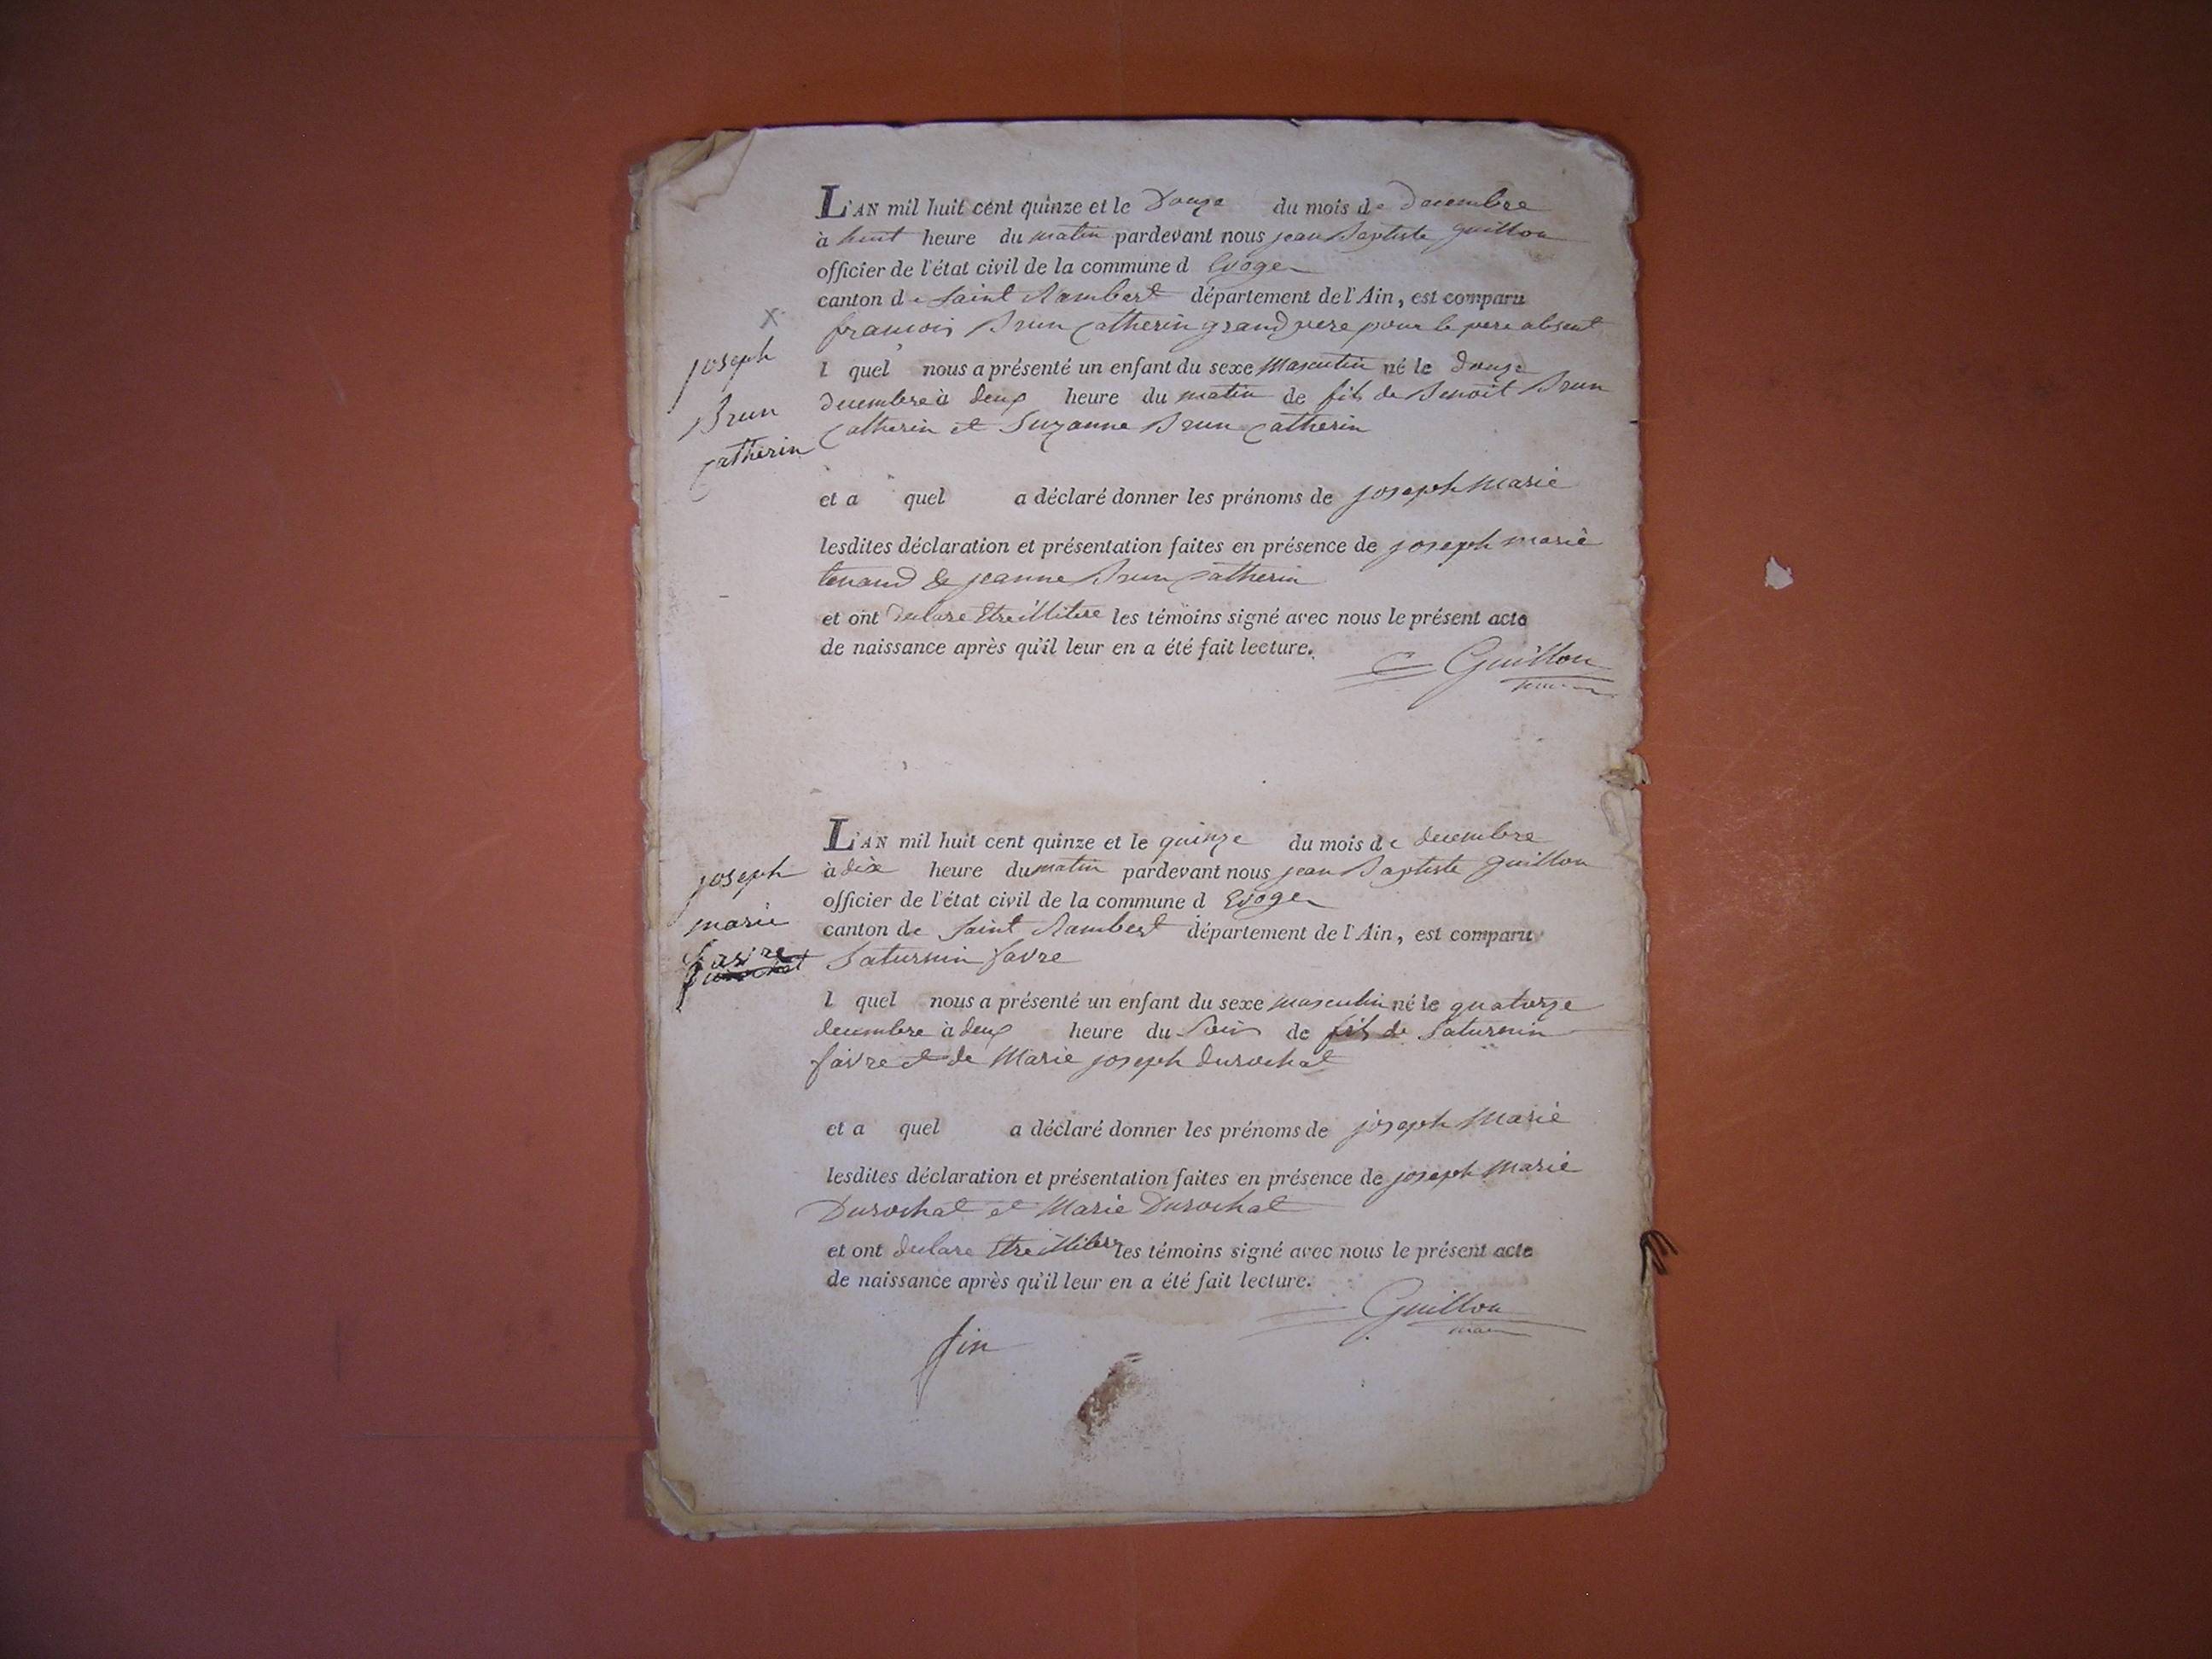 L'AN mil huit cent quinze et le Douze du mois de Decembre
à huit heure du matin pardevant nous jean Baptiste guillon
officier de l'état civil de la commune d Evoges
canton de Saint Rambert département de l'Ain, est comparu
X
francois Brun Catherin grand pere pour le pere absent
joseph
Brun
Catherin
l quel nous a présenté un enfant du sexe Masculin né le douze
decembre à deux heure du matin de fils de Benoit Brun
Catherin et Suzanne Brun Catherin
et a quel a déclaré donner les prénoms de joseph Marie
lesdites déclaration et présentation faites en présence de joseph marie
tenand & jeanne Brun Catherin
et ont declare Etre illitere les témoins signé avec nous le présent acte
de naissance après qu'il leur en a été fait lecture.
Guillon
L'AN mil huit cent quinze et le quinze du mois de decembre
à dix heure du matin pardevant nous jean Baptiste guillon
officier de l'état civil de la commune d Evoges
canton de Saint Rambert département de l'Ain, est comparu
joseph
marie
favre
Saturnin favre
l quel nous a présenté un enfant du sexe masculin né le quatorze
decembre à deux heure du Soir de fils de Saturnin
favre et de Marie joseph durochat
et a quel a déclaré donner les prénoms de joseph Marie
lesdites déclaration et présentation faites en présence de joseph Marie
Durochat et Marie Durochat
et ont declare Etre illitere les témoins signé avec nous le présent acte
de naissance après qu'il leur en a été fait lecture.
Guillon
maire
fin